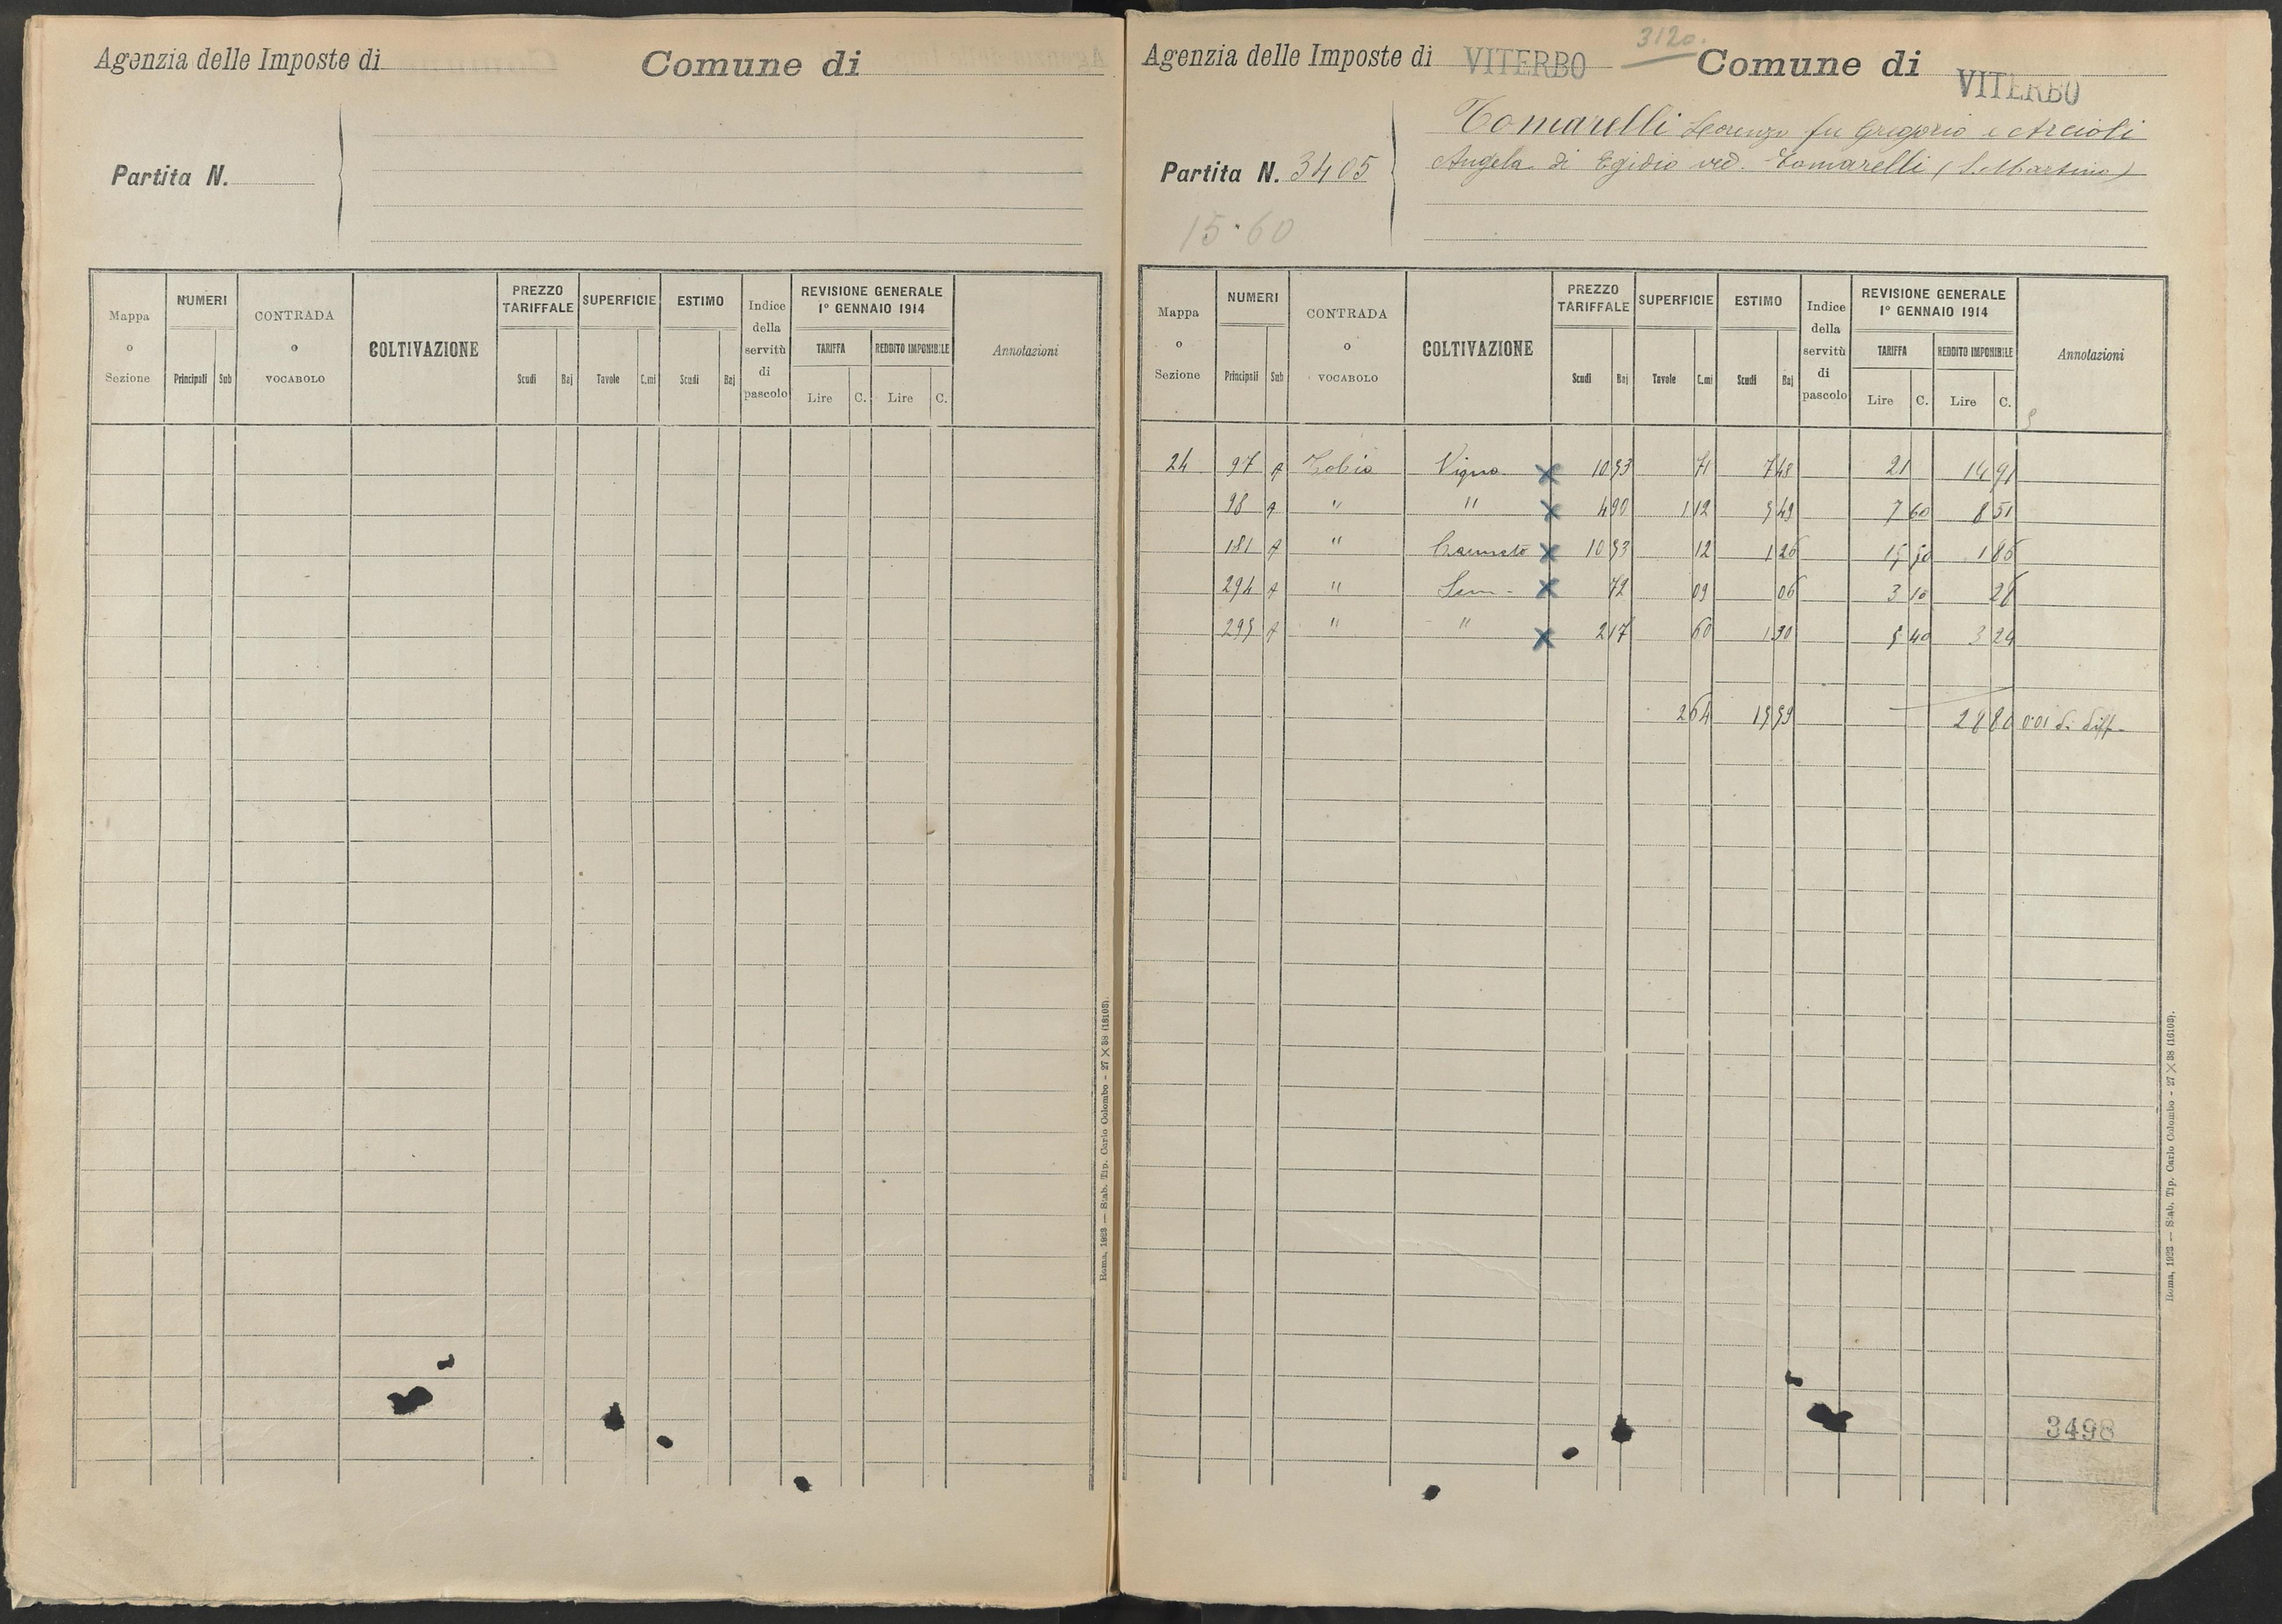 Agenzia delle Imposte di
Comune di
Partita N.
Mappa o Sezione
NUMERI
Principali Sub
CONTRADA o VOCABOLO
COLTIVAZIONE
PREZZO TARIFFALE
Scudi Baj
SUPERFICIE
Tavole C.mi
ESTIMO
Scudi Baj
Indice della servitù di pascolo
REVISIONE GENERALE
1° GENNAIO 1914
TARIFFA REDDITO IMPONIBILE
Lire C. Lire C.
Annotazioni
Roma, 1923 — Stab. Tip. Carlo Colombo - 27 X 38 (16103).
3120.
Agenzia delle Imposte di VITERBO
Comune di VITERBO
Tomarelli Lorenzo fu Gregorio e Arcioli
Angela di Egidio ved. Tomarelli (S. Martino)
Partita N. 3405
15·60
Mappa o Sezione
NUMERI
Principali Sub
CONTRADA o VOCABOLO
COLTIVAZIONE
PREZZO TARIFFALE
Scudi Baj
SUPERFICIE
Tavole C.mi
ESTIMO
Scudi Baj
Indice della servitù di pascolo
REVISIONE GENERALE
1° GENNAIO 1914
TARIFFA REDDITO IMPONIBILE
Lire C. Lire C.
Annotazioni
24 97 A Tobia Vigna X 10 53 71 7 48 21 14 91
98 A " " X 4 90 1 12 5 49 7 60 8 51
181 A " Canneto X 10 53 12 1 26 15 50 1 86
294 A " Sem. X 72 09 06 3 10 28
295 A " " X 2 17 60 1 30 5 40 3 24
2 64 15 59 28 80 0.01 di diff.
3498
Roma, 1923 — Stab. Tip. Carlo Colombo - 27 X 38 (16103).